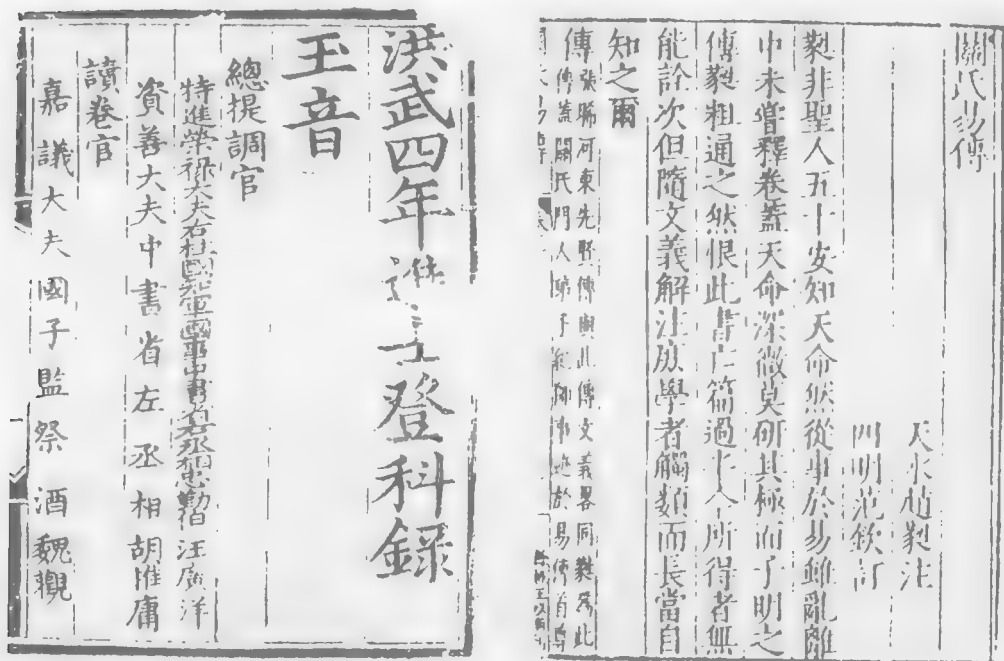 關氏易傳
天水趙蕤注
四明范欽訂
蕤非聖人五十安知天命然從事於易雖亂離
中未嘗釋卷蓋天命深微莫研其極而子明之
傳蕤粗通之然恨此書亡篇過半今所得者無
能詮次但隨文義解注庶學者觸類而長當自
知之爾
傳
張晞河東先賢傳與此傳文義畧同蕤爲此
傳蓋關氏門人弟子紀師事迹於易傳首尊
洪武四年進士登科錄
玉音
總提調官
特進榮祿大夫右柱國 軍國事中書右丞相忠勤伯汪廣洋
資善大夫中書省左丞相胡惟庸
讀卷官
嘉議大夫國子監祭酒魏觀